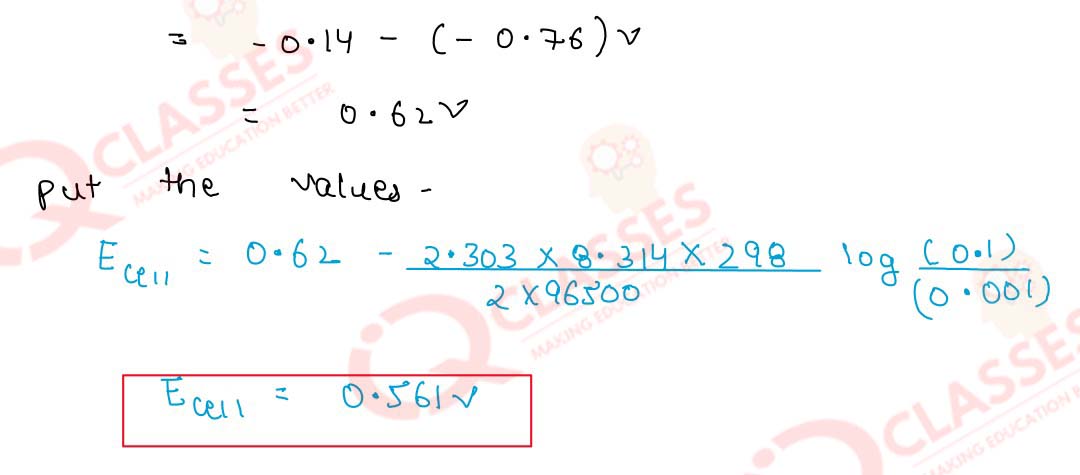 = -0.14 - (-0.76) V
= 0.62 V
put the values -
E cell = 0.62 - 2.303 × 8.314 × 298 / 2 × 96500 log (0.1) / (0.001)
E cell = 0.561 V
CLASSES
MAKING EDUCATION BETTER
CLASSES
MAKING EDUCATION BETTER
CLASSES
MAKING EDUCATION